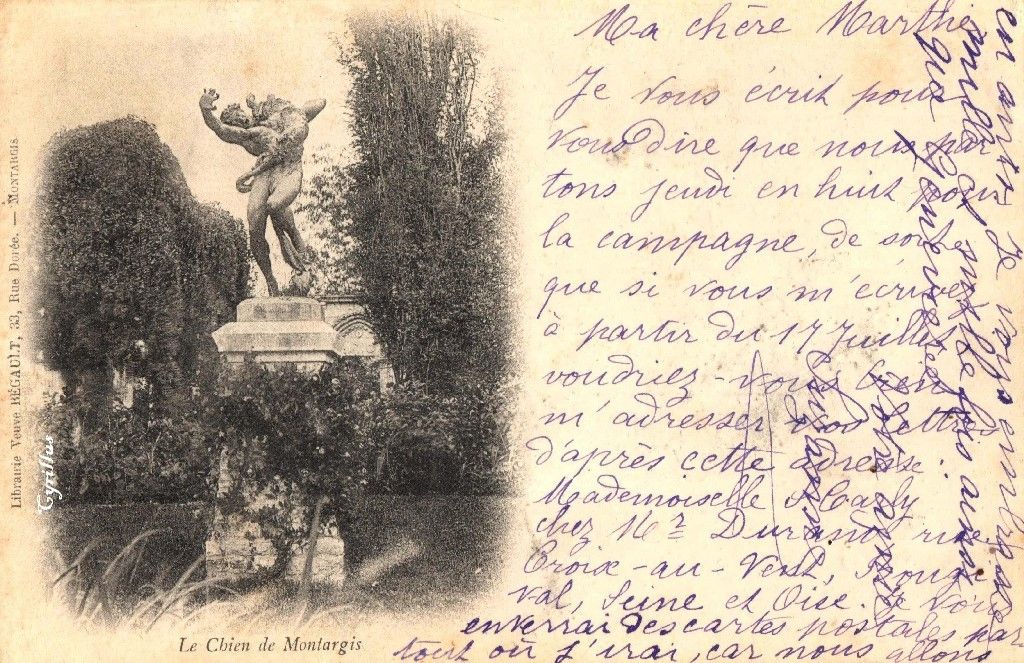 Librairie Veuve BÉGAULT, 33, Rue Dorée. — MONTARGIS
Cyrillus
Le Chien de Montargis
Ma chère Marthe
Je vous écrit pour
vous dire que nous par
tons jeudi en huit pour
la campagne, de sorte
que si vous m'écrivez
à partir du 17 Juillet
voudriez-vous bien
m'adresser vos lettres
d'après cette adresse.
Mademoiselle
chez Mr Durand, rue
Croix-au-Vent, Bougi
val, Seine et Oise. Je vous
enverrai des cartes postales par
tout où j'irai, car nous allons
en auto. Je vous embrasse
mille et mille fois ainsi
que Geneviève
Votre amie